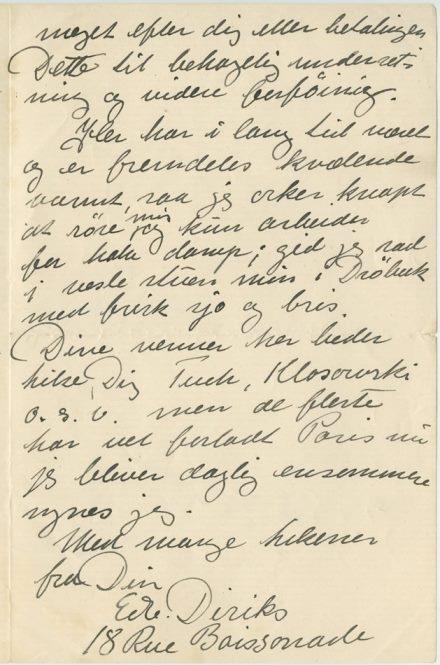 meget efter dig eller betalingen
Dette til behagelig underret-
ning og videre forföining.
Her har i lang tid været
og er fremdeles kvælende
varmt, saa jeg orker knapt
at röre mig jeg kun arbeider
for hale damp; gid jeg sad
i vesle stuen min i Dröbak
med frisk sjö og bris.
Dine venner her beder
hilse Dig Tuch, Klosowski
o. s. v. men de fleste
har vel forladt Paris nu
jeg bliver daglig ensommere
synes jeg.
Med mange hilsener
fra Din
Edv. Diriks
18 Rue Boissonade